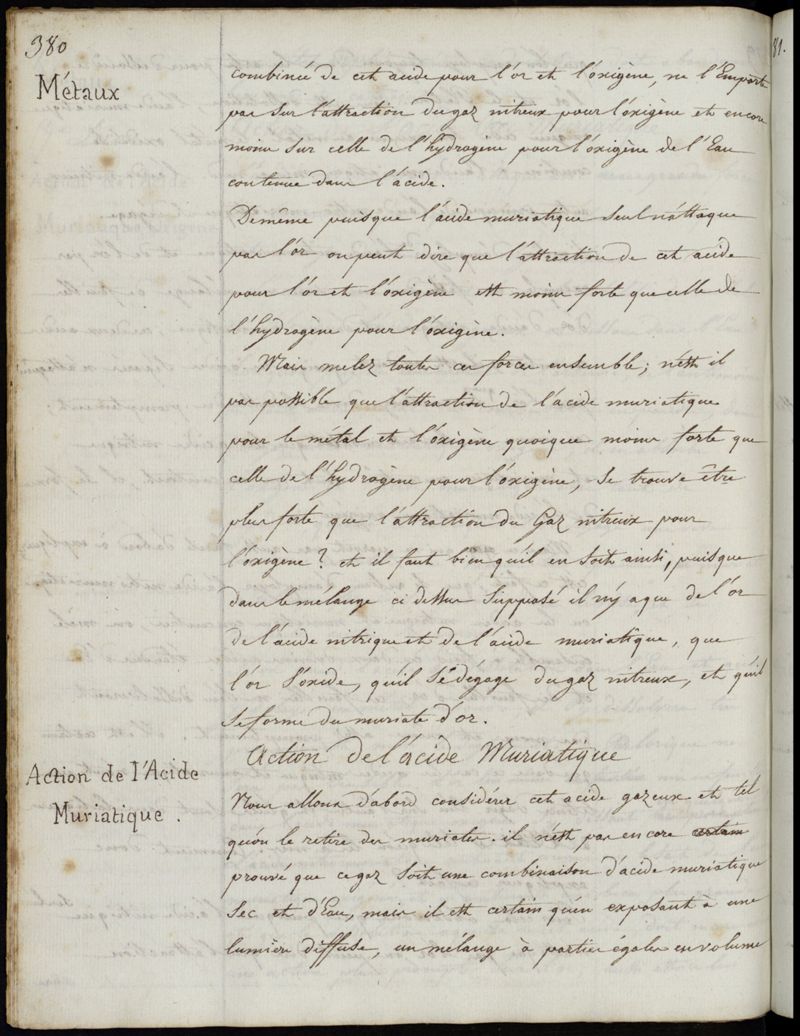 380
Métaux
combinée de cet acide pour l'or et l'oxigène, ne l'Emporte
pas sur l'attraction du gaz nitreux pour l'oxigène et encore
moins sur celle de l'hydrogène pour l'oxigène de l'Eau
contenue dans l'acide.
De même puisque l'acide muriatique seul n'attaque
pas l'or on peut dire que l'attraction de cet acide
pour l'or et l'oxigène est moins forte que celle de
l'hydrogène pour l'oxigène.
Mais melez toutes ces forces ensemble; n'est il
pas possible que l'attraction de l'acide muriatique
pour le métal et l'oxigène quoique moins forte que
celle de l'hydrogène pour l'oxigène, se trouve être
plus forte que l'attraction du Gaz nitreux pour
l'oxigène? et il faut bien qu'il en soit ainsi, puisque
dans le mélange ci dessus supposé il n'y a que de l'or
de l'acide nitrique et de l'acide muriatique, que
l'or s'oxide, qu'il se dégage du gaz nitreux, et qu'il
se forme du muriate d'or.
Action de l'acide Muriatique
Action de l'Acide
Muriatique.
Nous allons d'abord considérer cet acide gazeux et tel
qu'on le retire des muriates. il n'est pas encore certain
prouvé que ce gaz soit une combinaison d'acide muriatique
sec et d'Eau, mais il est certain qu'en exposant à une
lumière diffuse, un mélange à parties égales en volume
81.